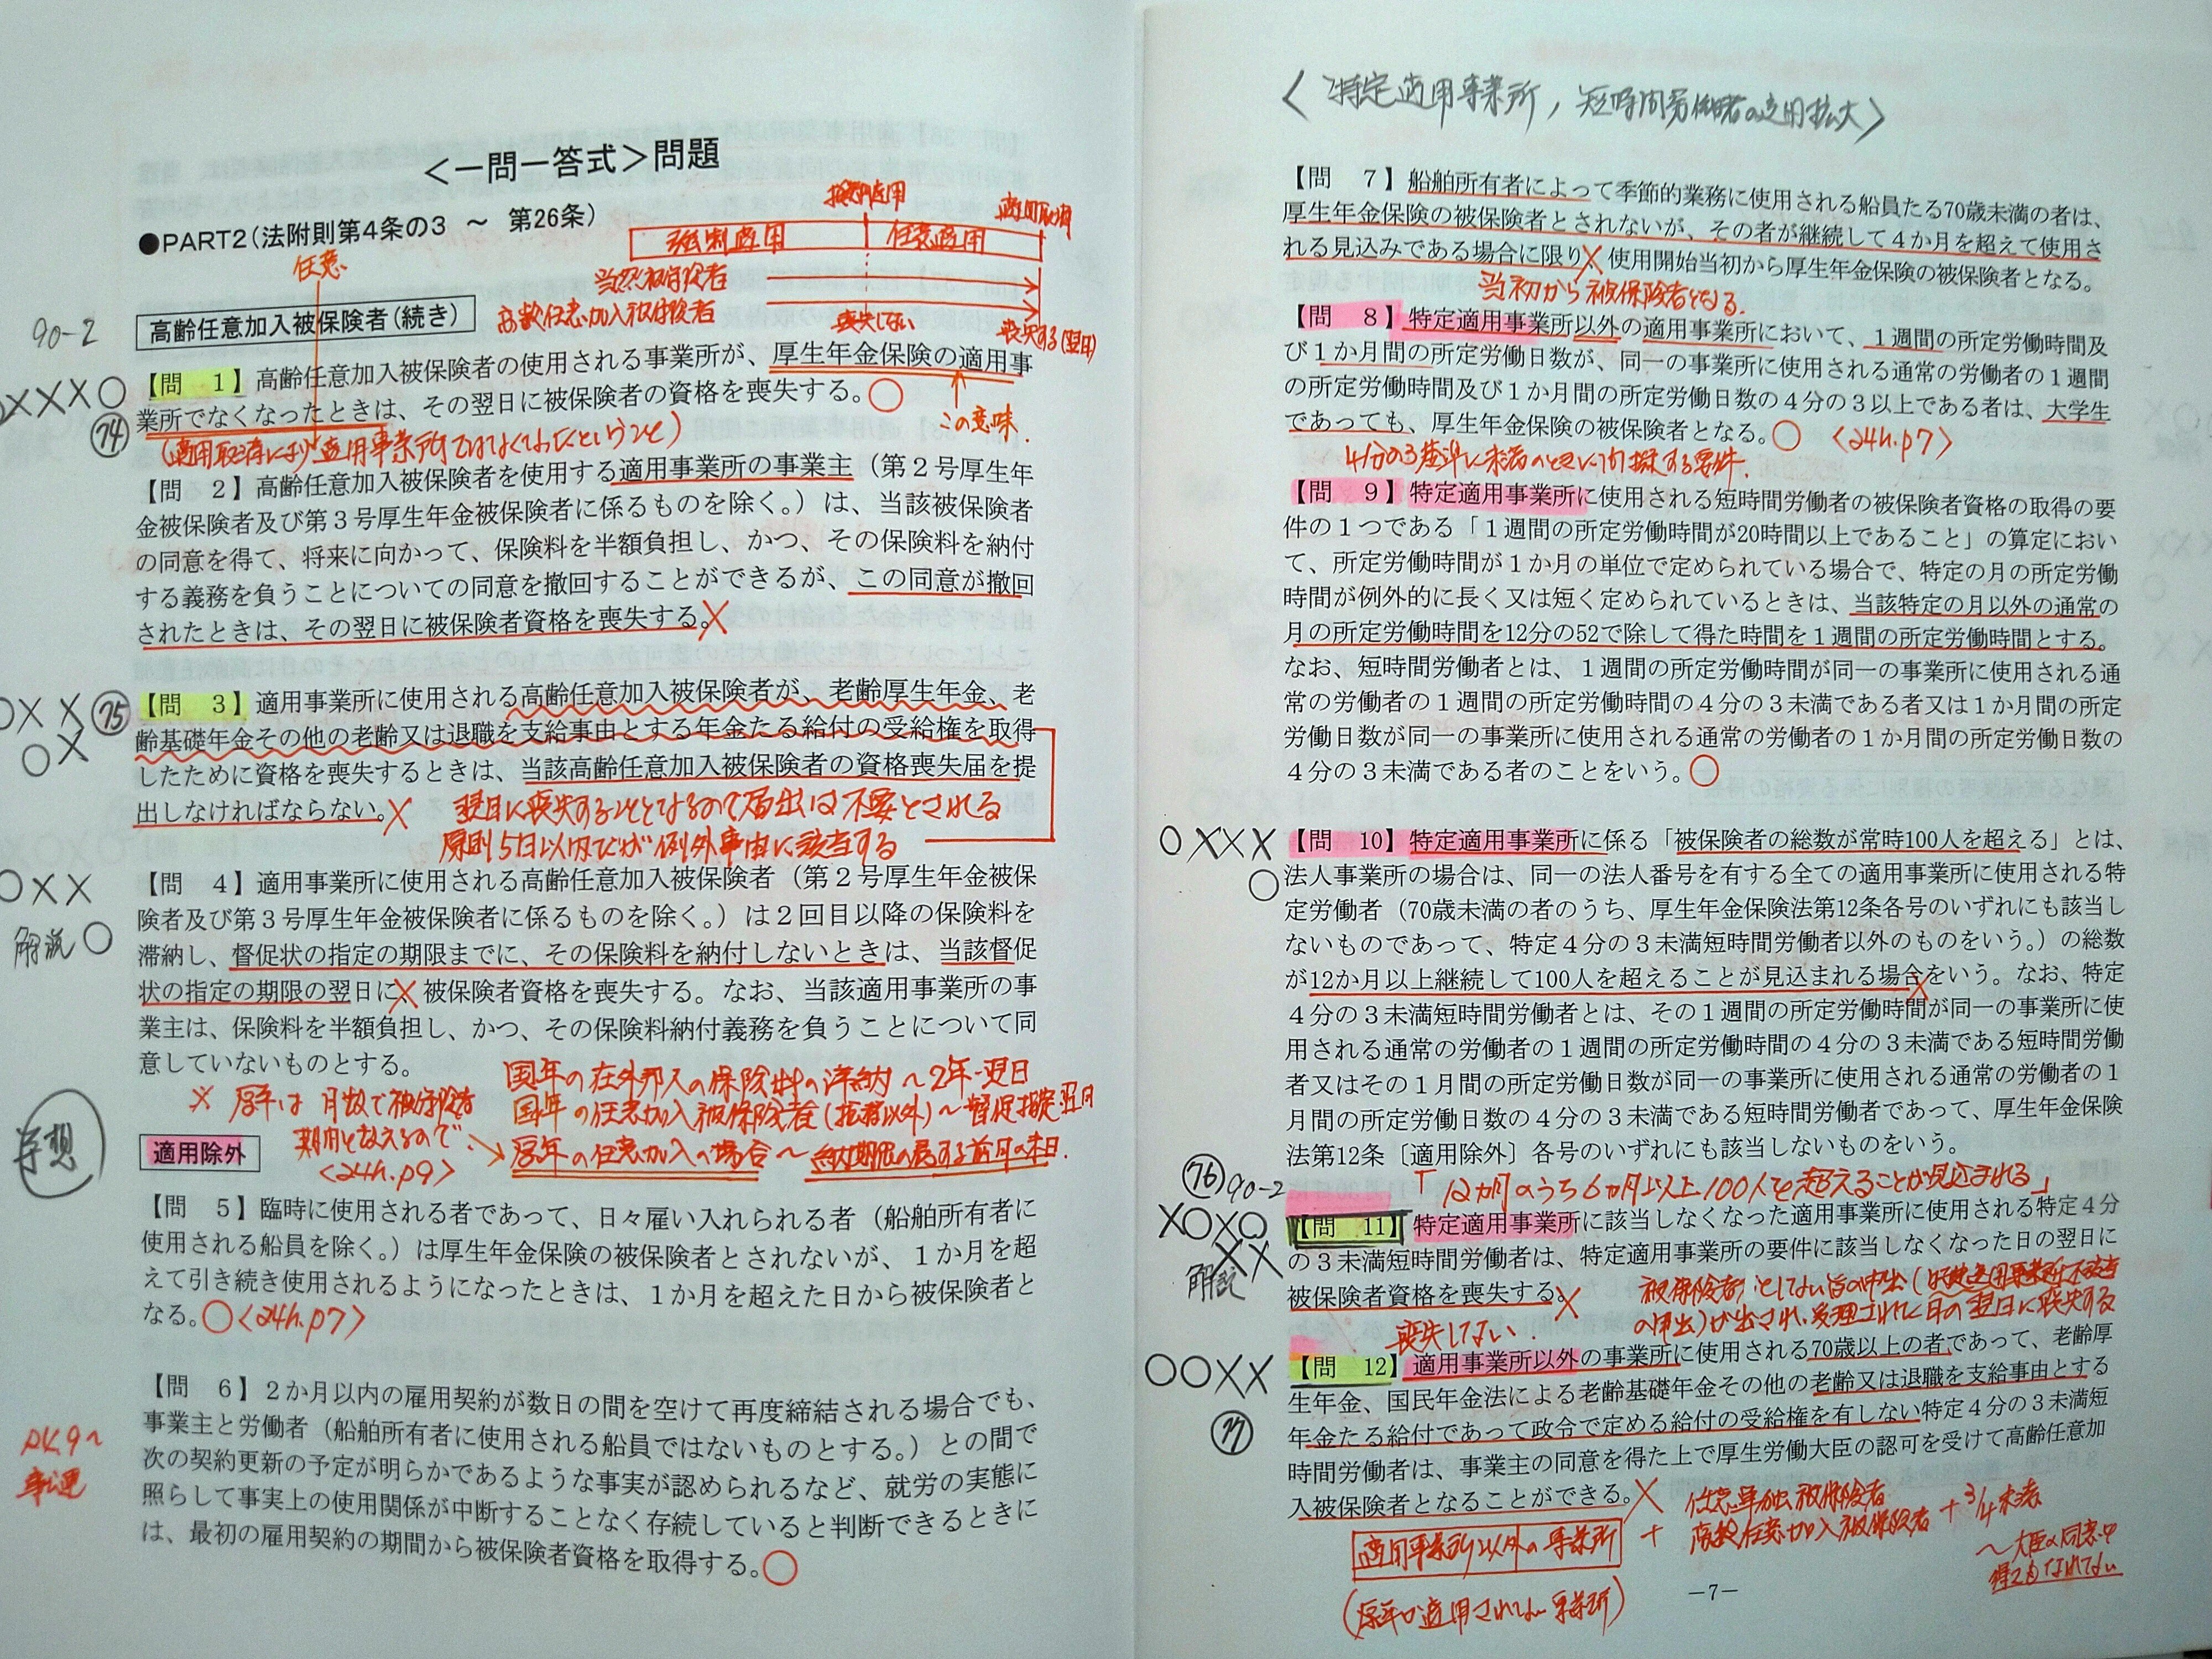 <一問一答式>問題
●PART2(法附則第4条の3 ～ 第26条)
任意
強制適用
任意適用
当然被保険者
高齢任意加入被保険者
喪失しない
喪失する(翌日)
90-2
高齢任意加入被保険者(続き)
×××○
74
【問 1】高齢任意加入被保険者の使用される事業所が、厚生年金保険の適用事
業所でなくなったときは、その翌日に被保険者の資格を喪失する。○
この意味.
(適用取消により適用事業所ではなくなったということ)
【問 2】高齢任意加入被保険者を使用する適用事業所の事業主（第2号厚生年
金被保険者及び第3号厚生年金被保険者に係るものを除く。）は、当該被保険者
の同意を得て、将来に向かって、保険料を半額負担し、かつ、その保険料を納付
する義務を負うことについての同意を撤回することができるが、この同意が撤回
されたときは、その翌日に被保険者資格を喪失する。×
○××
○×
75
【問 3】適用事業所に使用される高齢任意加入被保険者が、老齢厚生年金、老
齢基礎年金その他の老齢又は退職を支給事由とする年金たる給付の受給権を取得
したために資格を喪失するときは、当該高齢任意加入被保険者の資格喪失届を提
出しなければならない。×
翌日に喪失することとなるので届出は不要とされる
原則5日以内だが例外事由に該当する
○××
解説○
【問 4】適用事業所に使用される高齢任意加入被保険者（第2号厚生年金被保
険者及び第3号厚生年金被保険者に係るものを除く。）は2回目以降の保険料を
滞納し、督促状の指定の期限までに、その保険料を納付しないときは、当該督促
状の指定の期限の翌日に×被保険者資格を喪失する。なお、当該適用事業所の事
業主は、保険料を半額負担し、かつ、その保険料納付義務を負うことについて同
意していないものとする。
国年の在外邦人の保険料の滞納～2年-翌日
国年の任意加入被保険者(在外以外)～督促指定翌日
厚年の任意加入の場合～納期限の属する前月の末日.
※厚年は月数で被保険者
期間を数えるので、
<24h.p9>
予想
適用除外
【問 5】臨時に使用される者であって、日々雇い入れられる者（船舶所有者に
使用される船員を除く。）は厚生年金保険の被保険者とされないが、1か月を超
えて引き続き使用されるようになったときは、1か月を超えた日から被保険者と
なる。○<24h.p7>
【問 6】2か月以内の雇用契約が数日の間を空けて再度締結される場合でも、
事業主と労働者（船舶所有者に使用される船員ではないものとする。）との間で
次の契約更新の予定が明らかであるような事実が認められるなど、就労の実態に
照らして事実上の使用関係が中断することなく存続していると判断できるときに
は、最初の雇用契約の期間から被保険者資格を取得する。○
<特定適用事業所,短時間労働者の適用拡大>
【問 7】船舶所有者によって季節的業務に使用される船員たる70歳未満の者は、
厚生年金保険の被保険者とされないが、その者が継続して4か月を超えて使用さ
れる見込みである場合に限り×、使用開始当初から厚生年金保険の被保険者となる。
当初から被保険者となる.
【問 8】特定適用事業所以外の適用事業所において、1週間の所定労働時間及
び1か月間の所定労働日数が、同一の事業所に使用される通常の労働者の1週間
の所定労働時間及び1か月間の所定労働日数の4分の3以上である者は、大学生
であっても、厚生年金保険の被保険者となる。○ <24h.p7>
4分の3基準に未満のときに内探する要件.
【問 9】特定適用事業所に使用される短時間労働者の被保険者資格の取得の要
件の1つである「1週間の所定労働時間が20時間以上であること」の算定におい
て、所定労働時間が1か月の単位で定められている場合で、特定の月の所定労働
時間が例外的に長く又は短く定められているときは、当該特定の月以外の通常の
月の所定労働時間を12分の52で除して得た時間を1週間の所定労働時間とする。
なお、短時間労働者とは、1週間の所定労働時間が同一の事業所に使用される通
常の労働者の1週間の所定労働時間の4分の3未満である者又は1か月間の所定
労働日数が同一の事業所に使用される通常の労働者の1か月間の所定労働日数の
4分の3未満である者のことをいう。○
○×××
○
【問 10】特定適用事業所に係る「被保険者の総数が常時100人を超える」とは、
法人事業所の場合は、同一の法人番号を有する全ての適用事業所に使用される特
定労働者（70歳未満の者のうち、厚生年金保険法第12条各号のいずれにも該当し
ないものであって、特定4分の3未満短時間労働者以外のものをいう。）の総数
が12か月以上継続して100人を超えることが見込まれる場合×をいう。なお、特定
4分の3未満短時間労働者とは、その1週間の所定労働時間が同一の事業所に使
用される通常の労働者の1週間の所定労働時間の4分の3未満である短時間労働
者又はその1月間の所定労働日数が同一の事業所に使用される通常の労働者の1
月間の所定労働日数の4分の3未満である短時間労働者であって、厚生年金保険
法第12条〔適用除外〕各号のいずれにも該当しないものをいう。
「12か月のうち6か月以上100人を超えることが見込まれる」
76
90-2
×○×○
××
解説
【問 11】特定適用事業所に該当しなくなった適用事業所に使用される特定4分
の3未満短時間労働者は、特定適用事業所の要件に該当しなくなった日の翌日に
被保険者資格を喪失する。×
喪失しない.
被保険者としない旨の申出(特定適用事業所不該当
の申出)が出され、受理された日の翌日に喪失する
○○××
77
【問 12】適用事業所以外の事業所に使用される70歳以上の者であって、老齢厚
生年金、国民年金法による老齢基礎年金その他の老齢又は退職を支給事由とする
年金たる給付であって政令で定める給付の受給権を有しない特定4分の3未満短
時間労働者は、事業主の同意を得た上で厚生労働大臣の認可を受けて高齢任意加
入被保険者となることができる。×
任意単独被保険者
高齢任意加入被保険者 + 3/4未満
適用事業所以外の事業所 +
(厚年が適用されない事業所)
－7－